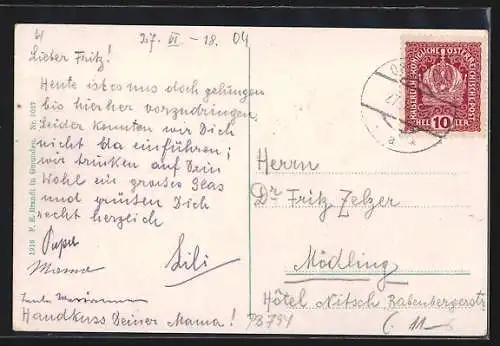 4
27. VI - 18. 04
Lieber Fritz!
Heute ist es uns doch gelungen
bis hierher vorzudringen,
leider konnten wir Dich
nicht da einführen;
wir trinken auf Dein
Wohl ein grosses Glas
und grüßen Dich
recht herzlich
Papa
Mama
Lili
Tante
Handkuss Deiner Mama!
1916 F. E. Brandt in Gmunden. Nr. 1027
KAISERLICHE KÖNIGLICHE ÖSTERREICHISCHE POST
HELLER 10
Herrn
Dr Fritz Zelzer
Mödling
Hôtel Nitsch Babenbergerstr
PB794